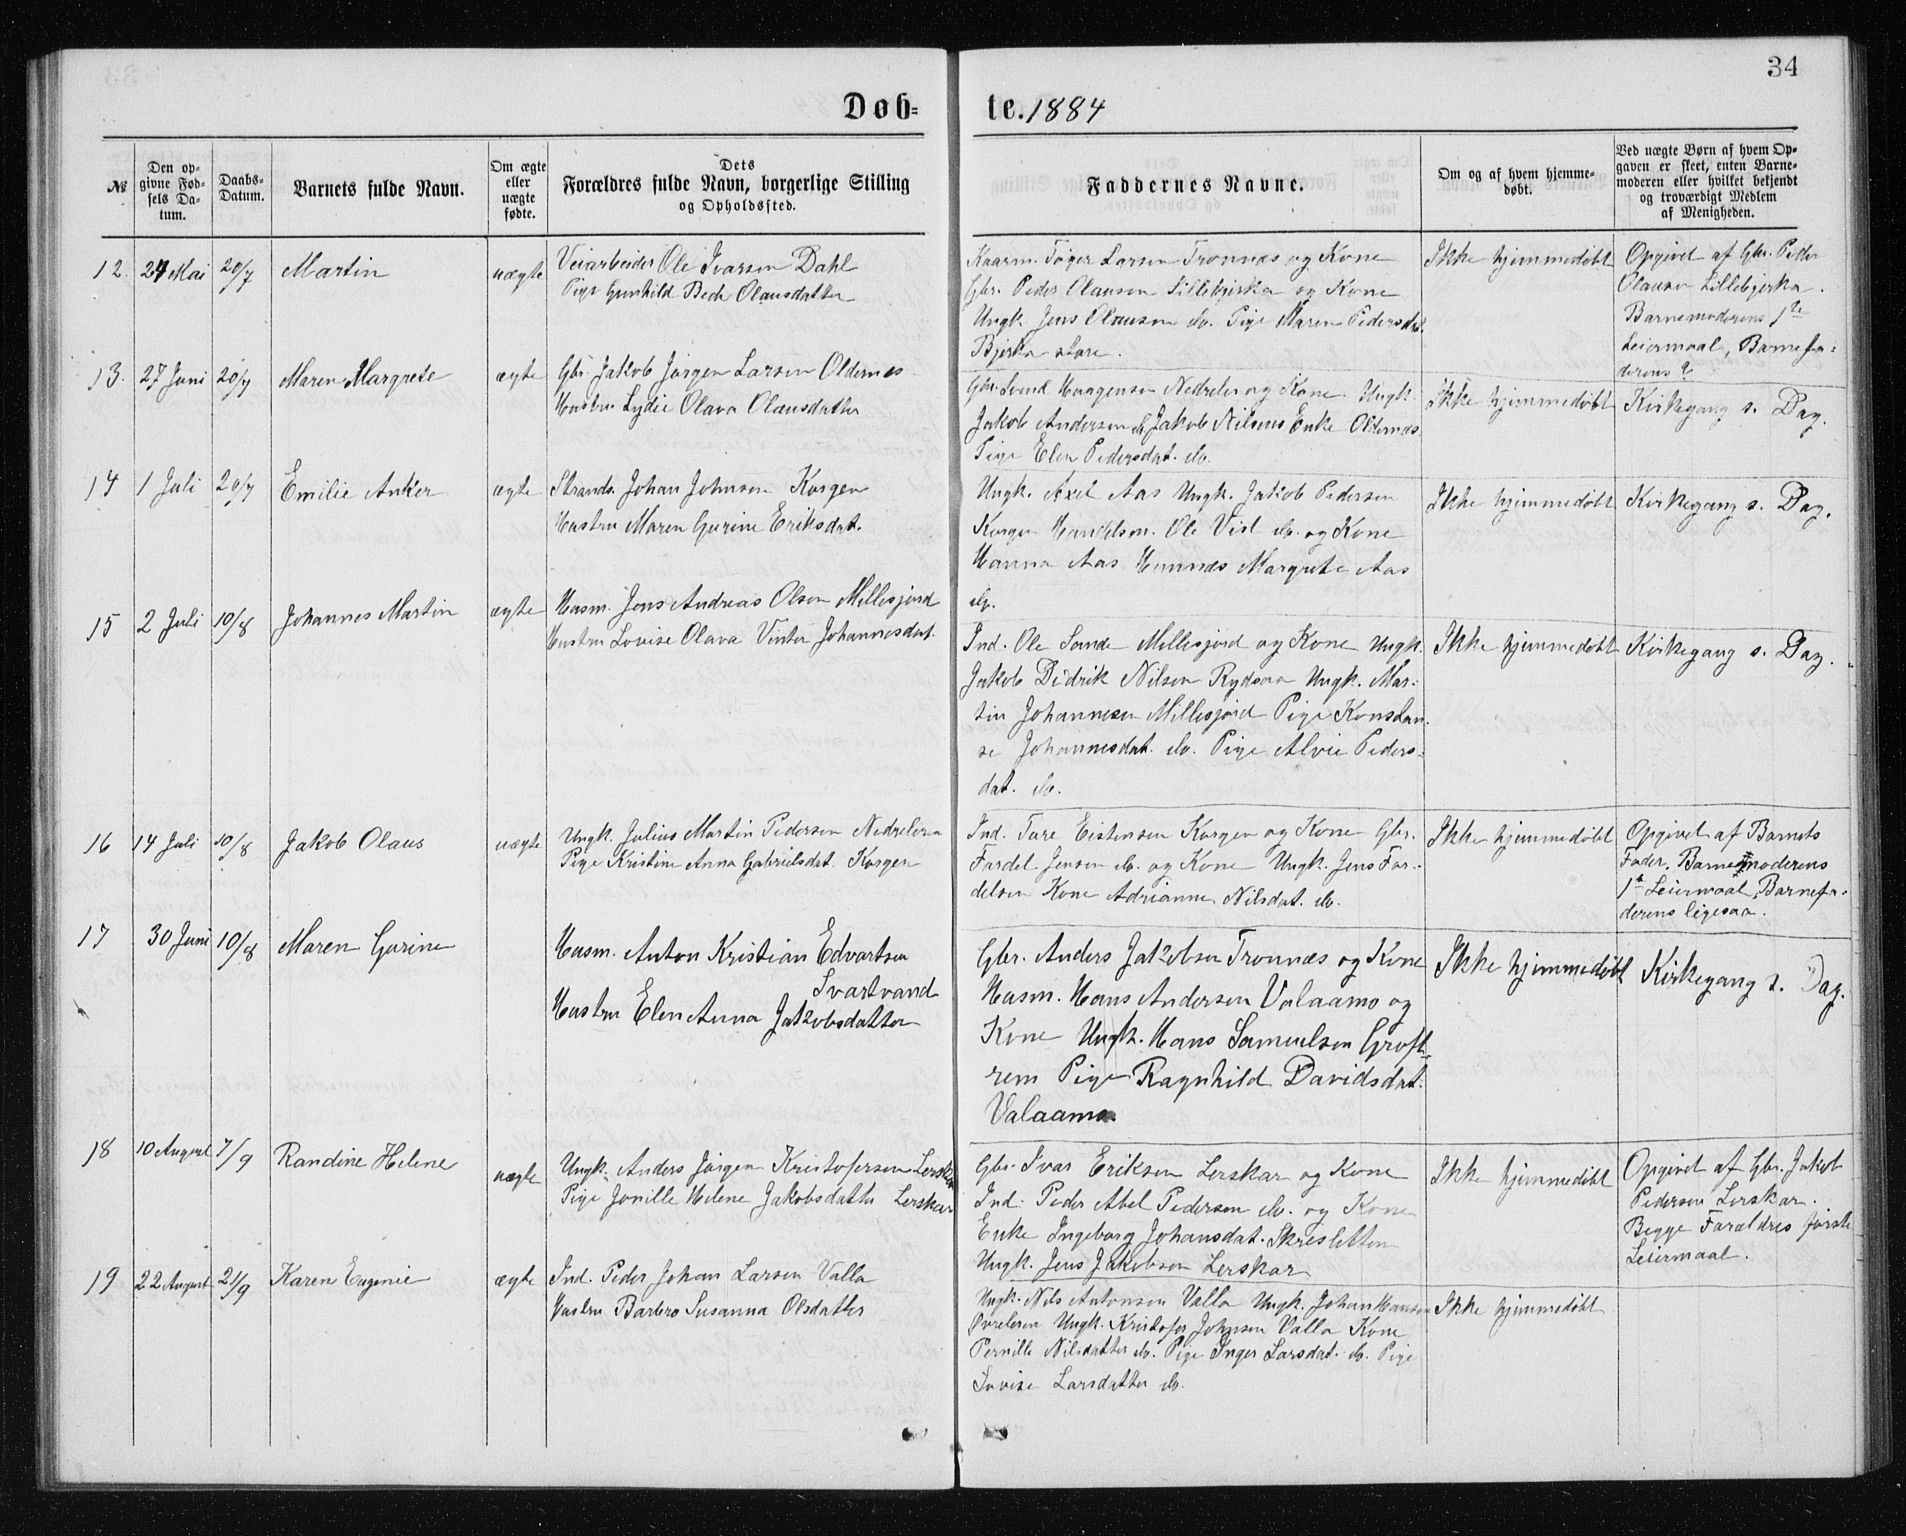 34
Døb-
te. 1884
№
Den op-
givne Fød-
sels Da-
tum.
Daabs-
Datum.
Barnets fulde Navn.
Om ægte
eller
uægte
fødte.
Dets
Forældres fulde Navn, borgerlige Stilling
og Opholdssted.
Faddernes Navne.
Om og af hvem hjemme-
døbt.
Ved uægte Børn af hvem Op-
gaven er skeet, enten Barne-
moderen eller hvilket bekjendt
og troværdigt Medlem
af Menigheden.
12. 24 Mai 20/7 Martin uægte
Veiarbeider Ole Ivarsen Dahl
Pige Gunhild Bech Olausdatter
Kaarm. Tøger Larsen Tronnæs og Kone
Gbr. Peder Olausen Lillebjerka og Kone
Ungk. Jens Olausen do. Pige Maren Pedersdat.
Bjerka store.
Ikke hjemmedøbt
Opgivet af Gbr. Peder
Olausen Lillebjerka.
Barnemoderens 1te
Leiermaal, Barnefa-
derens ?
13. 27 Juni 20/7 Maren Margrete ægte
Gbr. Jakob Jørgen Larsen Oldernes
Hustru Lydie Olava Olausdatter
Gbr. Svend Haagensen Nedreleren og Kone Ungk.
Jakob Andersen do. Jakob Nilsens Enke Oldernæs
Pige Elen Pedersdat. do.
Ikke hjemmedøbt
Kirkegang s. Dag.
14 1 Juli 20/7 Emilie Anker ægte
Strands. Johan Johnsen Korgen
Hustru Maren Gurine Eriksdat.
Ungk. Axel Aas Ungk. Jakob Pedersen
Korgen Handelsm. Ole Vist do. og Kone
Hanna Aas Hemnæs Margrete Aas
do.
Ikke hjemmedøbt
Kirkegang s. Dag.
15 2 Juli 10/8 Johannes Martin ægte
Husm. Jens Andreas Olsen Millesjord
Hustru Lovise Olava Vinter Johannesdat.
Ind. Ole Sande Millesjord og Kone Ungk.
Jakob Didrik Nilsen Rydsaa Ungk. Mar-
tin Johannesen Millesjord Pige Konstan-
se Johannesdat. do. Pige Alvie Peders-
dat. do.
Ikke hjemmedøbt
Kirkegang s. Dag.
16 14 Juli 10/8 Jakob Olaus uægte
Ungk. Julius Martin Pedersen Nedreleren
Pige Kristine Anna Gabrielsdat. Korgen
Ind. Tare Eistensen Korgen og Kone Gbr.
Fardel Jensen do. og Kone Ungk. Jens Far-
delsen Kone Adrianne Nilsdat. do.
Ikke hjemmedøbt
Opgivet af Barnets
Fader. Barnemoderens
1te Leiermaal, Barnefa-
derens ligesaa.
17 30 Juni 10/8 Maren Gurine
Husm. Anton Kristian Edvartsen
Svartvand
Hustru Elen Anna Jakobsdatter
Gbr. Anders Jakobsen Tronnæs og Kone
Husm. Hans Andersen Valaamo og
Kone Ungk. Hans Samuelsen Groft-
rem Pige Ragnhild Davidsdat.
Valaamo.
Ikke hjemmedøbt
Kirkegang s. Dag.
18 10 August 7/9 Randine Helene uægte
Ungk. Anders Jørgen Kristofersen Lerskar
Pige Jonille Helene Jakobsdatter Lerskar
Gbr. Ivar Eriksen Lerskar og Kone
Ind. Peder Abel Pedersen do. og Kone
Enke Ingeborg Johansdat. Skresletten
Ungk. Jens Jakobsen Lerskar
Ikke hjemmedøbt
Opgivet af Gbr. Jakob
Pedersen Lerskar.
Begge Forældres første
Leiermaal.
19 22 August 21/9 Karen Eugenie ægte
Ind. Peder Johan Larsen Valla
Hustru Barbro Susanna Olsdatter
Ungk. Nils Antonsen Valla Ungk. Johan Hansen
Øvreleren Ungk. Kristofer Johnsen Valla Kone
Pernille Nilsdatter do. Pige Inger Larsdat. do. Pige
Lovise Larsdatter do.
Ikke hjemmedøbt